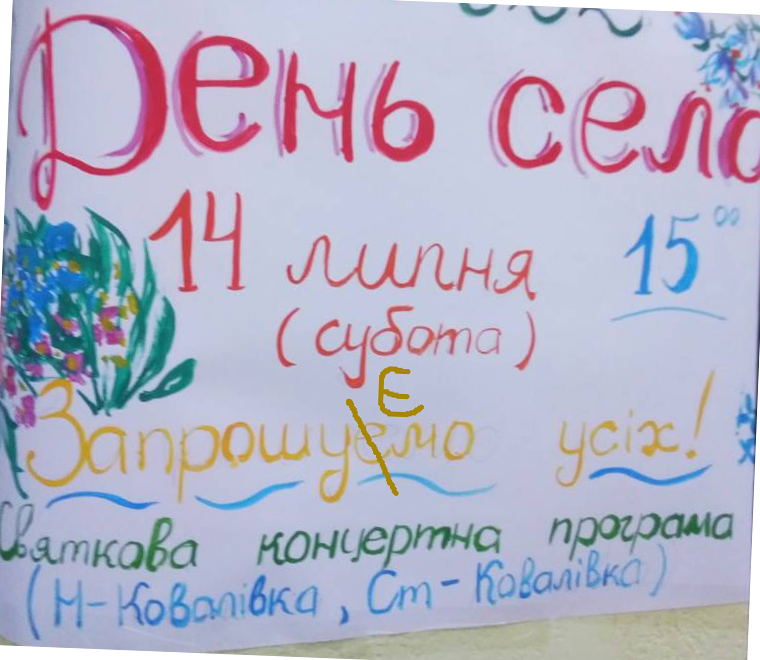 День села
14 липня 15⁰⁰
(субота)
Є
Запрошуемо усіх!
Святкова концертна програма
(Н-Ковалівка, Ст-Ковалівка)